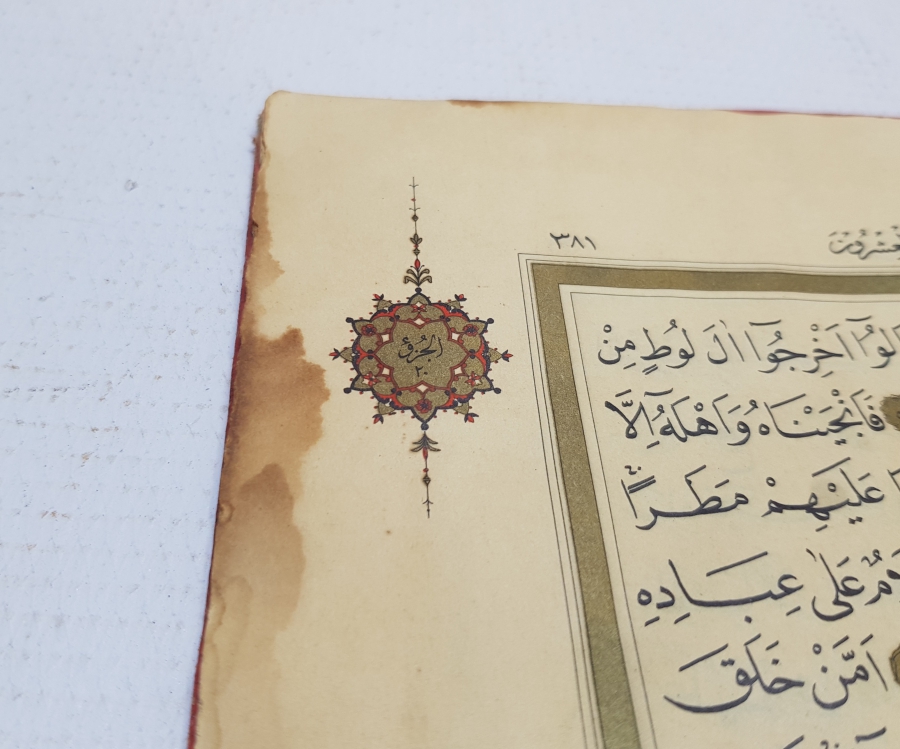 ٣٨١
الجزؤ
٢٠
اَخْرِجُٓوا اٰلَ لُوطٍ مِنْ
فَاَنْجَيْنَاهُ وَاَهْلَهُٓ اِلَّا
عَلَيْهِمْ مَطَرًاۚ
عَلٰى عِبَادِهِ
اَمَّنْ خَلَقَ